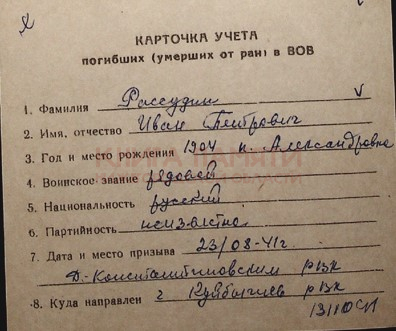 КАРТОЧКА УЧЕТА
погибших (умерших от ран) в ВОВ
1. Фамилия Рассудин
2. Имя, отчество Иван Петрович
3. Год и место рождения 1904 н. Александровна
КНИГА ПАМЯТИ
ОБЛАСТИ
4. Воинское звание рядовой
5. Национальность русский
6. Партийность неизвестно
7. Дата и место призыва 23/08-41г.
Д-Константиновским РВК
8. Куда направлен г Куйбышев РВК